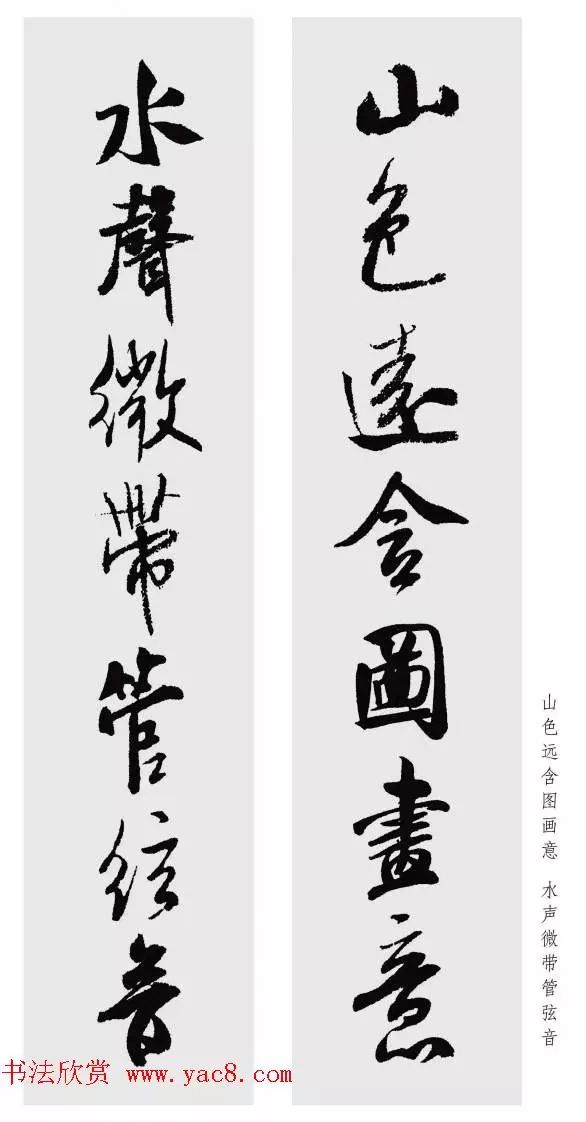 山色遠含圖畫意
水聲微帶管絃音
山色远含图画意 水声微带管弦音
书法欣赏 www.yac8.com